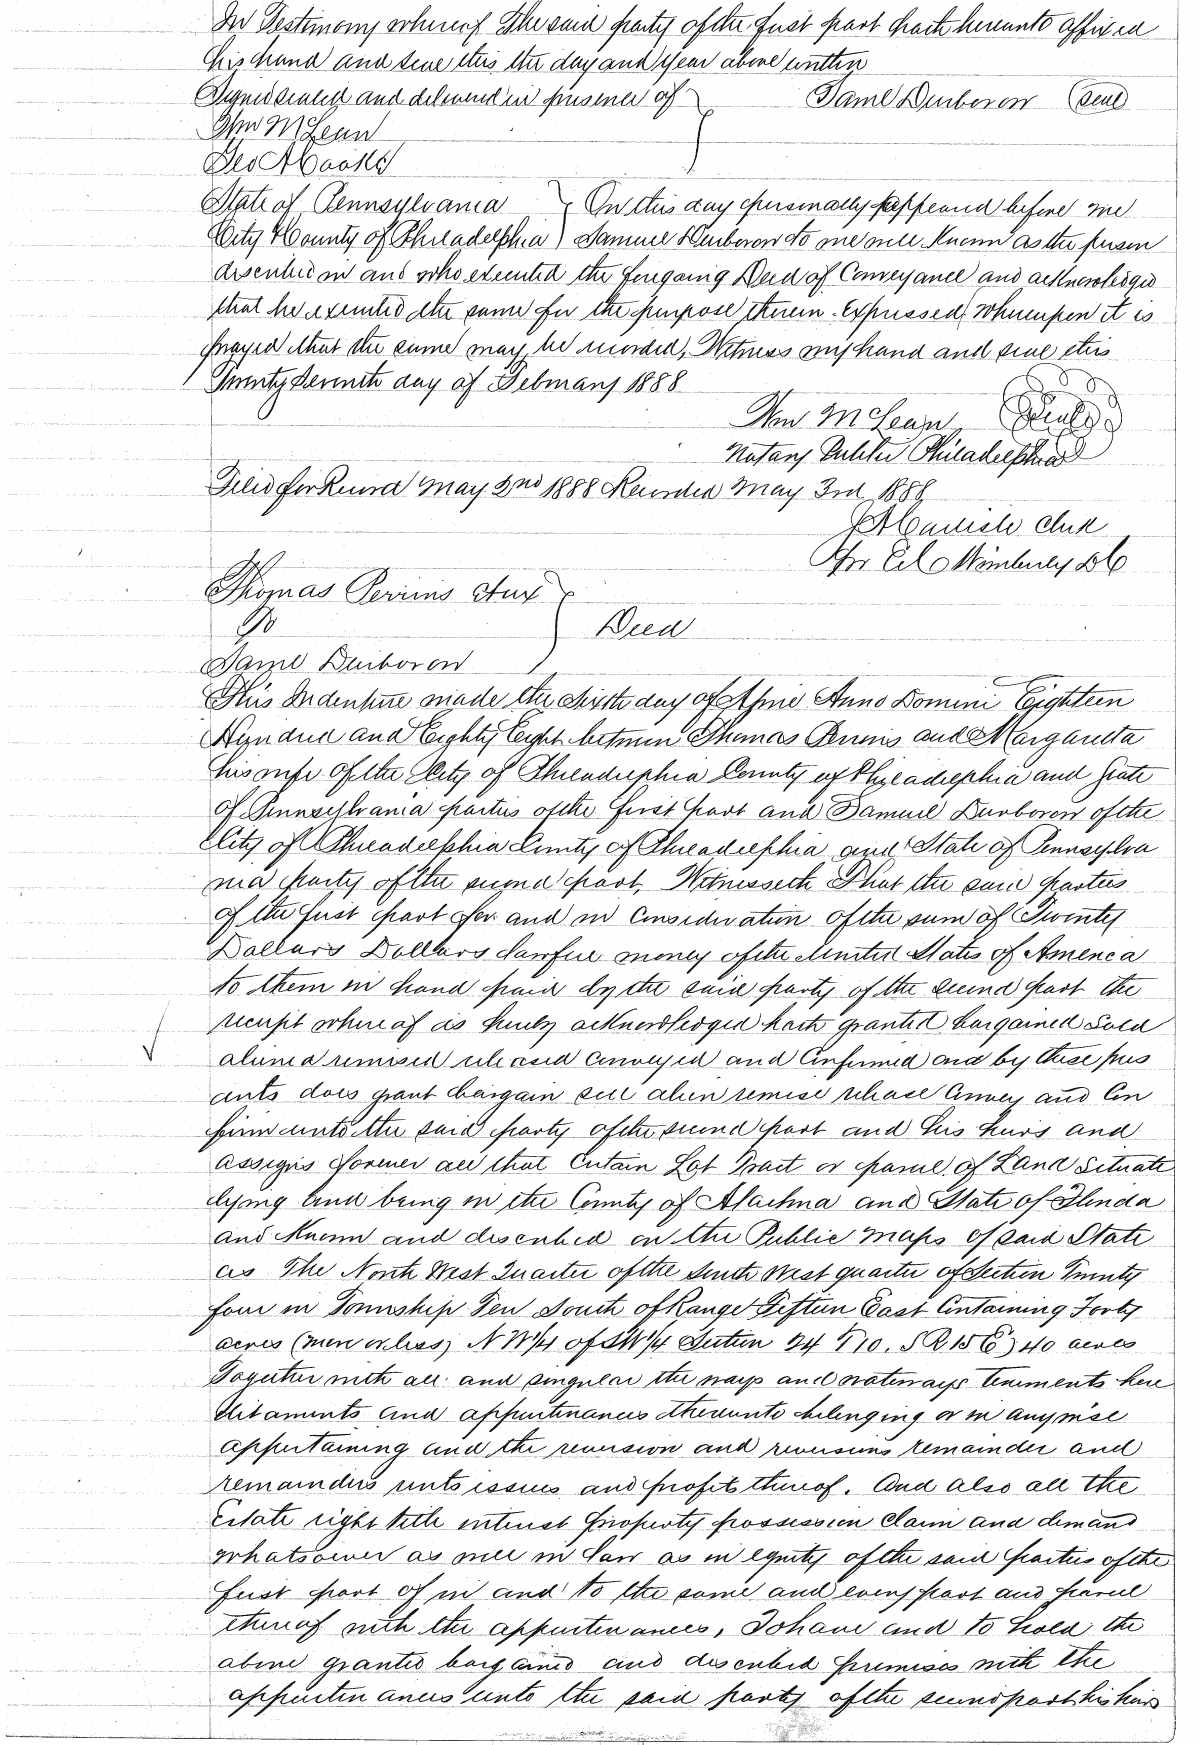 In Testimony whereof The said party of the first part hath hereunto affixed
his hand and seal this the day and year above written
Signed sealed and delivered in presence of Saml Durborow (seal)
Wm McLean
Geo
State of Pennsylvania } On this day personally appeared before me
City & County of Philadelphia } Samuel Durborow to me well Known as the person
described in and who executed the foregoing Deed of Conveyance and acknowledged
that he executed the same for the purpose therein Expressed, Whereupon it is
prayed that the same may be recorded, Witness my hand and seal this
Twenty Seventh day of February 1888
Wm McLean (Seal)
Notary Public Philadelphia
Filed for Record May 2nd 1888 Recorded May 3rd 1888
Clerk
Per Wimberly DC
Thomas Perrins & ux }
To } Deed
Saml Durborow }
This Indenture made the Sixth day of April Anno Domini Eighteen
Hundred and Eighty Eight between Thomas Perrins and Margaretta
his wife of the City of Philadelphia County of Philadelphia and State
of Pennsylvania parties of the first part and Samuel Durborow of the
City of Philadelphia County of Philadelphia and State of Pennsylva
nia party of the second part, Witnesseth That the said parties
of the first part for and in Consideration of the sum of Twenty
Dollars Dollars Lawful money of the United States of America
to them in hand paid by the said party of the second part the
receipt whereof is hereby acknowledged hath granted bargained Sold
aliened remised released Conveyed and Confirmed and by these pres
ents does grant bargain sell alien remise release Convey and Con
firm unto the said party of the second part and his heirs and
assigns forever all that Certain Lot Tract or parcel of Land Situate
lying and being in the County of Alachua and State of Florida
and Known and described on the Public Maps of said State
as The North West Quarter of the South West quarter of Section Twenty
four in Township Ten South of Range Fifteen East Containing Forty
acres (more or less) N W 1/4 of SW 1/4 Section 24 T 10. S R 15 E) 40 acres
Together with all and singular the ways and waterways tenements here
ditaments and appurtenances thereunto belonging or in anywise
appertaining and the reversion and reversions remainder and
remainders rents issues and profits thereof. And also all the
Estate right title interest property possession Claim and demand
whatsoever as well in Law as in equity of the said parties of the
first part of in and to the same and every part and parcel
thereof with the appurtenances, To have and to hold the
above granted bargained and described premises with the
appurtenances unto the said party of the second part his heirs